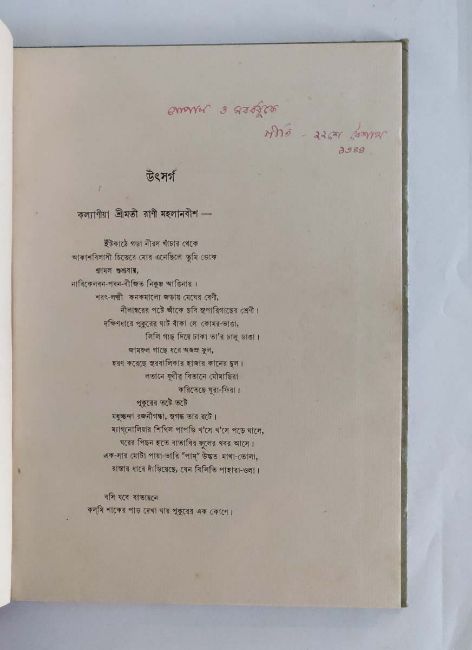 ও নববধূকে
২২শে বৈশাখ
উৎসর্গ
কল্যাণীয়া শ্রীমতী রাণী মহলানবীশ—
ইঁটকাঠে গড়া নীরস খাঁচার থেকে
আকাশবিলাসী চিত্তেরে মোর এনেছিলে তুমি ডেকে
শ্যামল শুশ্রূষায়,
নারিকেলবন-পবন-বীজিত নিকুঞ্জ আঙিনায়।
শরৎ-লক্ষ্মী কনকমাল্যে জড়ায় মেঘের বেণী,
নীলাম্বরের পটে আঁকে ছবি সুপারিগাছের শ্রেণী।
দক্ষিণধারে পুকুরের ঘাট বাঁকা সে কোমর-ভাঙা,
লিলি গাছ দিয়ে ঢাকা তা'র ঢালু ডাঙা।
জামরুল গাছে ধরে অজস্র ফুল,
হরণ করেছে সুরবালিকার হাজার কানের দুল।
লতানে যূথীর বিতানে মৌমাছিরা
করিতেছে ঘুরা-ফিরা।
পুকুরের তটে তটে
মধুচ্ছন্দা রজনীগন্ধা, সুগন্ধ তার রটে।
ম্যাগ্‌নোলিয়ার শিথিল পাপড়ি খ'সে খ'সে পড়ে ঘাসে,
ঘরের পিছন হতে বাতাবির ফুলের খবর আসে।
এক-সার মোটা পায়া-ভারি "পাম্" উদ্ধত মাথা-তোলা,
রাস্তার ধারে দাঁড়িয়েছে, যেন বিলিতি পাহারা-ওলা।
বসি যবে বাতায়নে
কল্‌মি শাকের পাড় দেখা যায় পুকুরের এক কোণে।